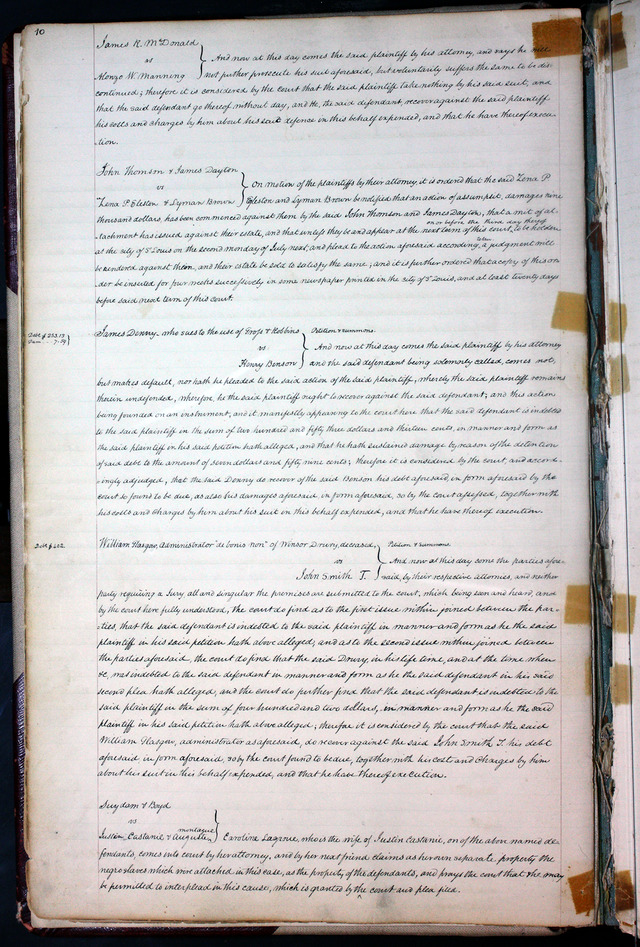 10
James R. McDonald
vs
Alonzo W. Manning
And now at this day comes the said plaintiff by his attorney, and says he will
not further prosecute his suit aforesaid, but voluntarily suffers the same to be dis-
continued; therefore it is considered by the court that the said plaintiff take nothing by his said suit, and
that the said defendant go thereof without day, and &c, the said defendant, recover against the said plaintiff
his costs and charges by him about his suit defence in this behalf expended, and that he have thereof execu-
tion.
John Thomson & James Dayton
vs
Zena P. Elston & Lyman Brown
On motion of the plaintiffs by their attorney, it is ordered that the said Zena P
Elston and Lyman Brown be notified that an action of assumpsit, damages nine
thousand dollars, has been commenced against them by the said John Thomson and James Dayton, that a writ of at-
tachment has issued against their estate, and that unless they be and appear at the next term of this court, to be holden
on or before the third day thereof
at the city of St Louis on the second monday of July next, and plead to the action aforesaid according to law, a judgment will
be rendered against them, and their estate be sold to satisfy the same; and it is further ordered that a copy of this or-
der be inserted for four weeks successively in some newspaper printed in the city of St Louis, and at least twenty days
before said next term of this court.
Debt $253.13
Dam. - 7.59
James Denny, who sues to the use of Fross & Robbins
vs
Henry Benson
Petition & summons.
And now at this day comes the said plaintiff by his attorney
and the said defendant being solemnly called, comes not,
but makes default, nor hath he pleaded to the said action of the said plaintiff, whereby the said plaintiff remains
therein undefended, wherefore, he the said plaintiff ought to recover against the said defendant; and this action
being founded on an instrument, and it manifestly appearing to the court here that the said defendant is indebted
to the said plaintiff in the sum of two hundred and fifty three dollars and thirteen cents, in manner and form as
the said plaintiff in his said petition hath alleged, and that he hath sustained damage by reason of the detention
of said debt to the amount of seven dollars and fifty nine cents; therefore it is considered by the court, and accord-
ingly adjudged, that the said Denny do recover of the said Benson his debt aforesaid, in form aforesaid by the
court so found to be due, as also his damages aforesaid, in form aforesaid, so by the court assessed, together with
his costs and charges by him about his suit in this behalf expended, and that he have thereof execution.
Debt $402
William Glasgow, Administrator "de bonis non" of Winsor Drury, deceased,
vs
John Smith T.
Petition & summons.
And now at this day come the parties afore-
said, by their respective attornies, and neither
party requiring a Jury, all and singular the premises are submitted to the court, which being seen and heard, and
by the court here fully understood, the court do find as to the first issue within joined between the par-
ties, that the said defendant is indebted to the said plaintiff in manner and form as he the said
plaintiff in his said petition hath above alleged; and as to the second issue within joined between
the parties aforesaid, the court do find that the said Drury, in his life time, and at the time when
&c, was indebted to the said defendant in manner and form as he the said defendant in his said
second plea hath alleged, and the court do further find that the said defendant is indebted to the
said plaintiff in the sum of four hundred and two dollars, in manner and form as he the said
plaintiff in his said petition hath above alleged; therefore it is considered by the court that the said
William Glasgow, administrator as aforesaid, do recover against the said John Smith T. his debt
aforesaid in form aforesaid, so by the court found to be due, together with his costs and charges by him
about his suit in this behalf expended, and that he have thereof execution.
Suydam & Boyd
vs
montague
Justin Castanie & Augustus
Caroline Lagrove, who is the wife of Justin Castanie, on of the above named de-
fendants, comes into court by her attorney, and by her next friend, claims as her own separate property the
negro slaves which were attached in this case, as the property of the defendants, and prays the court that she may
be permitted to interplead in this cause, which is granted by the court and plea filed.